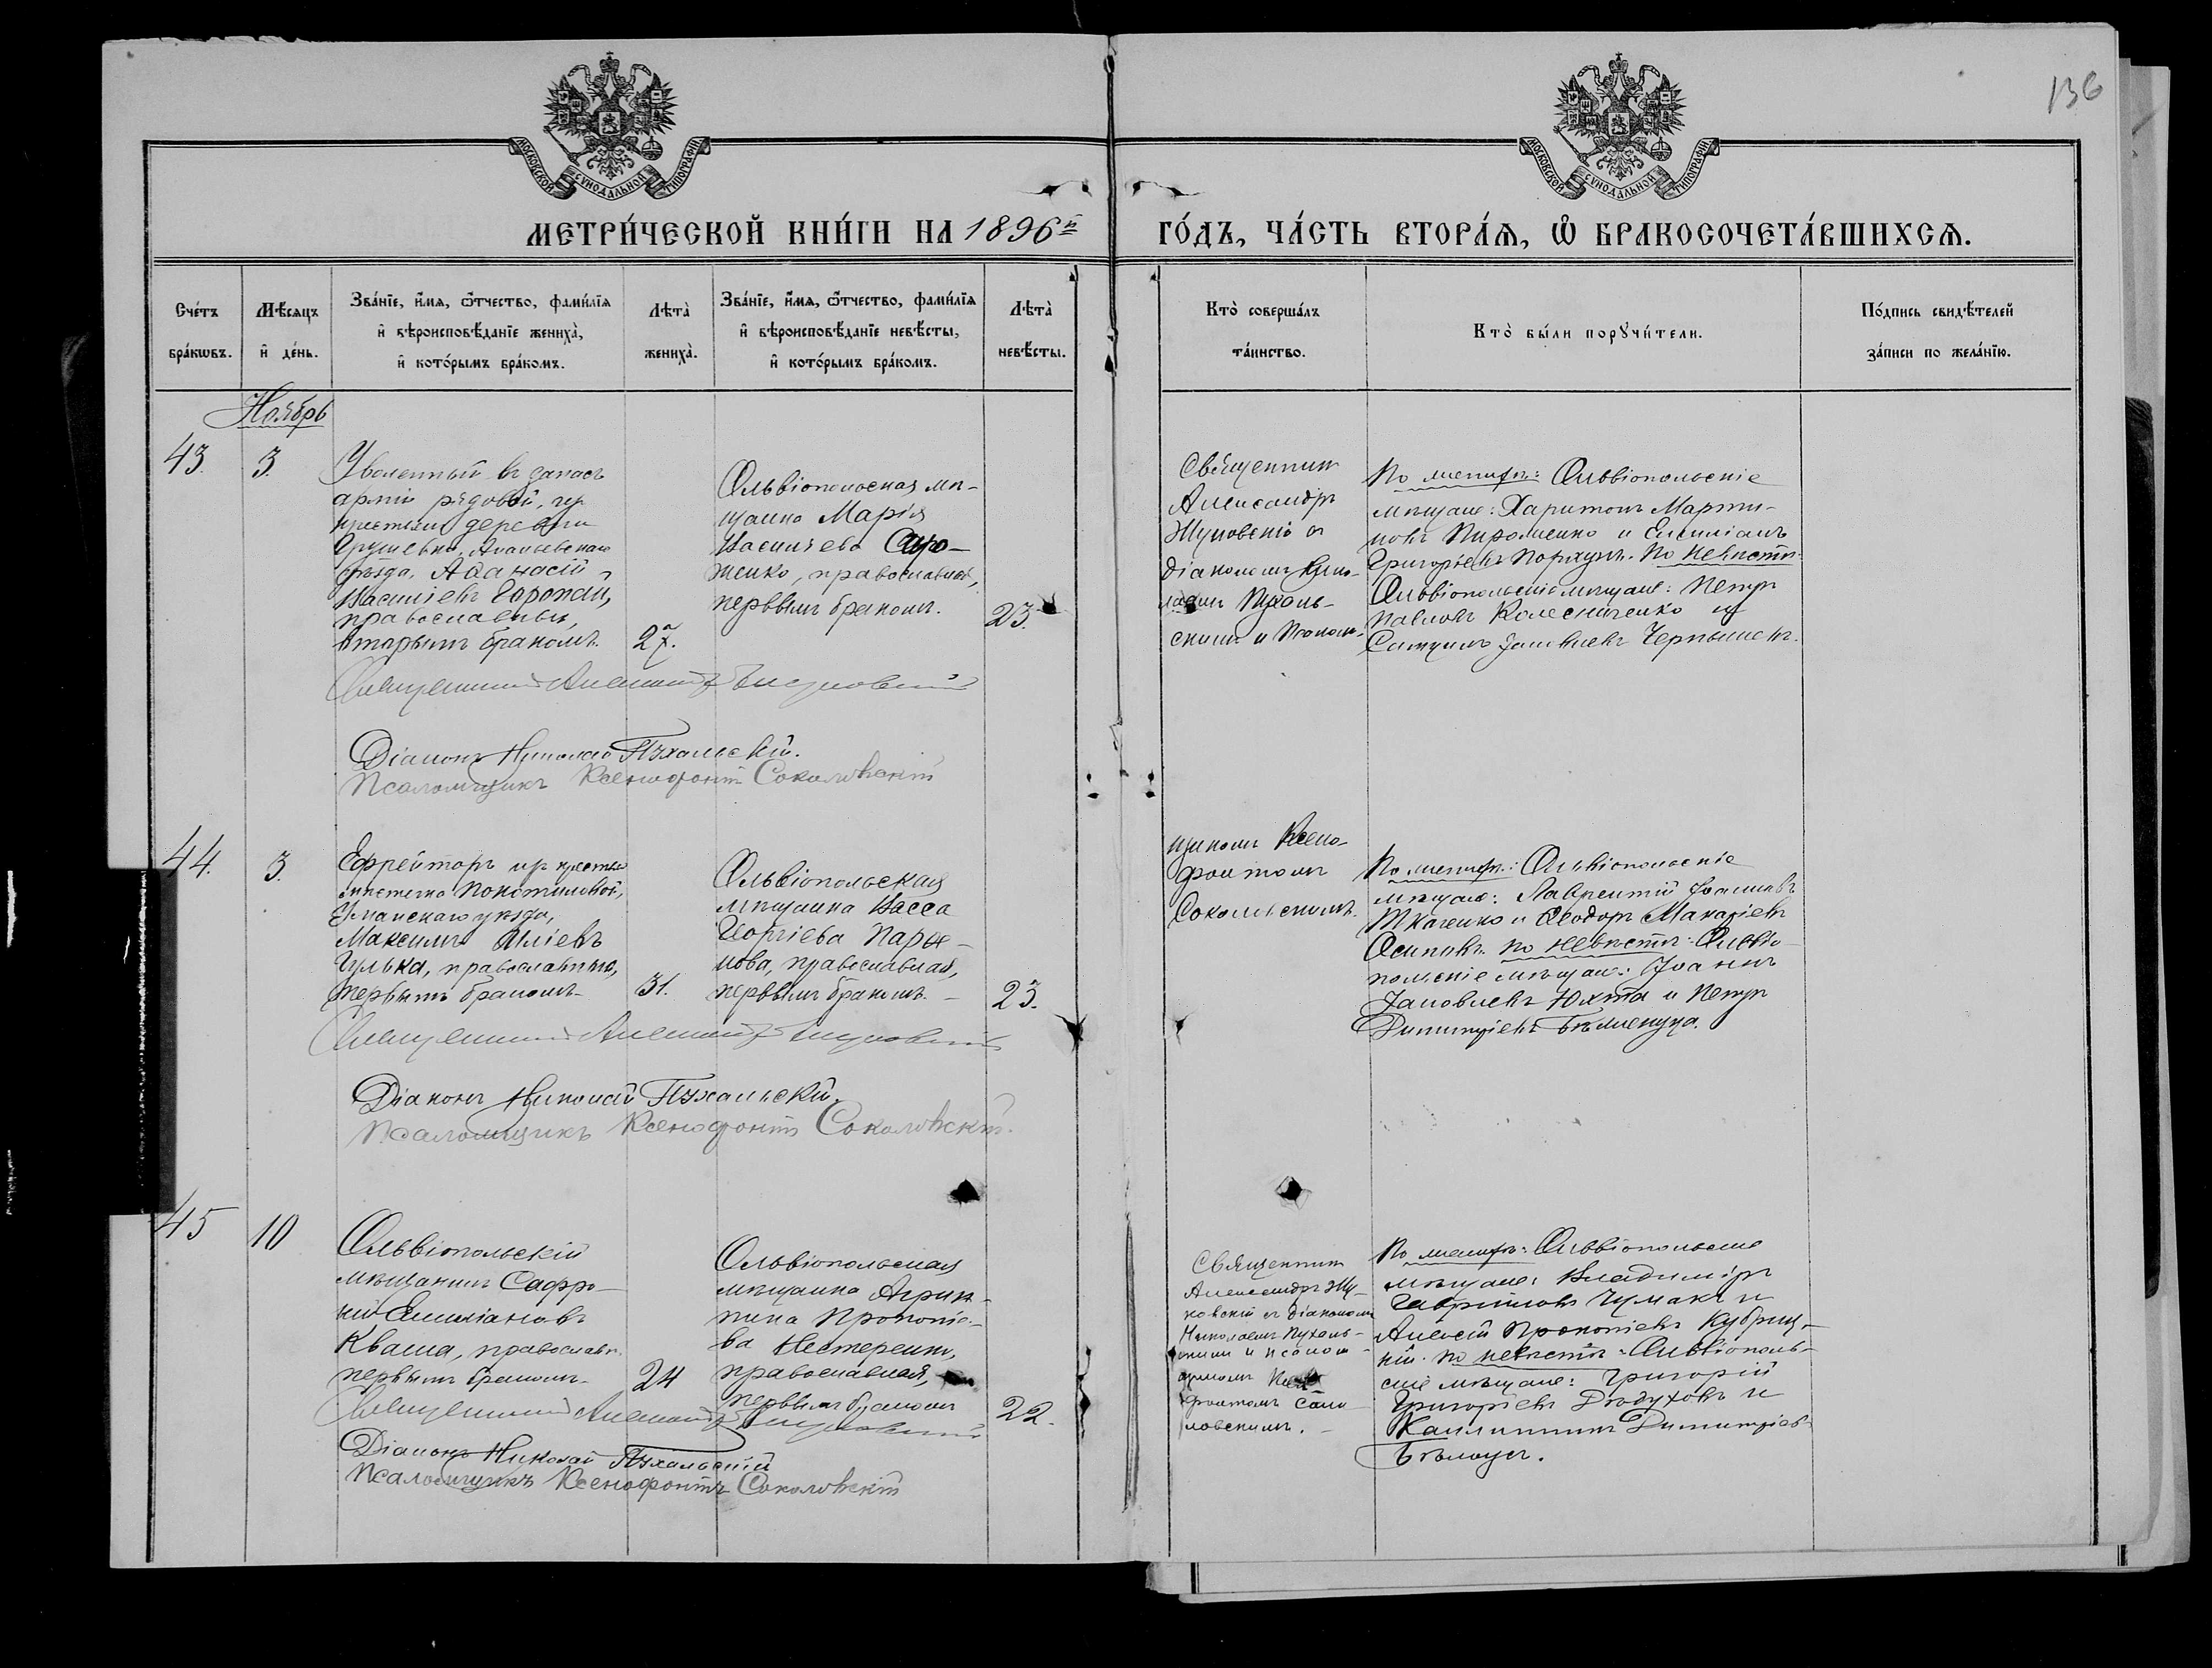 136
МОСКОВСКОЙ СУНОДАЛЬНОЙ ТИПОГРАФІИ
МОСКОВСКОЙ СУНОДАЛЬНОЙ ТИПОГРАФІИ
МЕТРИ́ЧЕСКОЙ КНИ́ГИ НА 1896й
ГО́ДЪ, ЧА́СТЬ ВТОРА́Ѧ, Ѡ БРАКОСОЧЕТА́ВШИХСѦ.
Сче́тъ
бра́кѡвъ.
Мѣ́сѧцъ
и де́нь.
Зва́нїе, и́мѧ, ѻ́тчество, фами́лїѧ
и вѣроисповѣ́данїе жениха̀,
и кото́рымъ бра́комъ.
Лѣта̀
жениха̀.
Зва́нїе, и́мѧ, ѻ́тчество, фами́лїѧ
и вѣроисповѣ́данїе невѣ́сты,
и кото́рымъ бра́комъ.
Лѣта̀
невѣ́сты.
Кто̀ соверша́лъ
та́инство.
Кто̀ бы́ли порꙋчи́тели.
По́дпись свидѣ́телей
за́писи по жела́нїю.
Ноябрь
43.
3.
Уволенный въ запасъ
арміи рядовой, изъ
крестьян деревни
Грушевки, Ананьевскаго
уѣзда, Аѳанасій
Василіевъ
православный,
вторымъ бракомъ.
27.
Ольвіопольская мѣ-
щанка Марія
Василіева
женко, православная,
первымъ бракомъ.
23
Священникъ
Александръ
Жуковскій съ
діакономъ Нико-
лаемъ Пухаль-
скимъ и Псалом-
По женихѣ: Ольвіопольскіе
мѣщане: Харитонъ Марти-
новъ и Емиліанъ
Григоріевъ По невѣстѣ:
Ольвіопольскіе мѣщане: Петръ
Павловъ Колесниченко и
Самуилъ Іаковлевъ Чернышевъ.
Священникъ Александръ Жуковскій
Діаконъ Николай Пухальскій.
Псаломщикъ Ксенофонтъ Соколовскій
44.
3.
Ефрейторъ изъ крестьян
мѣстечка
Уманскаго уѣзда,
Максимъ Иліевъ
Гулька, православный,
первымъ бракомъ.
31.
Ольвіопольская
мѣщанка Васса
Георгіева Пархо-
мова, православная,
первымъ бракомъ.
23.
щикомъ Ксено-
фонтомъ
Соколовскимъ.
По женихѣ: Ольвіопольскіе
мѣщане: Лаврентій Іоанновъ
Ткаченко и Ѳеодоръ Макаріевъ
Осиповъ. По невѣстѣ: Ольвіо-
польскіе мѣщане: Іоаннъ
Іаковлевъ Юхта и Петръ
Димитріевъ
Священникъ Александръ Жуковскій
Діаконъ Николай Пухальскій.
Псаломщикъ Ксенофонтъ Соколовскій.
45
10
Ольвіопольскій
мѣщанинъ Сафро-
ній Емиліановъ
Кваша, православн.
первымъ бракомъ.
24
Ольвіопольская
мѣщанка Агрип-
пина Прокопіе-
ва Нестеренко,
православная,
первымъ бракомъ
22.
Священникъ
Александръ Жу-
ковскій съ діакономъ
Николаемъ Пухаль-
скимъ и псалом-
щикомъ Ксено-
фонтомъ Соко-
ловскимъ.
По женихѣ: Ольвіопольскіе
мѣщане: Владиміръ
Гавриловъ Чумакъ и
Алексій Прокопіевъ Кубриц-
кій. По невѣстѣ: Ольвіополь-
скіе мѣщане: Григорій
Григоріевъ и
Каллиникъ Димитріевъ
Бѣлоусъ.
Священникъ Александръ Жуковскій
Діаконъ Николай Пухальскій
Псаломщикъ Ксенофонтъ Соколовскій